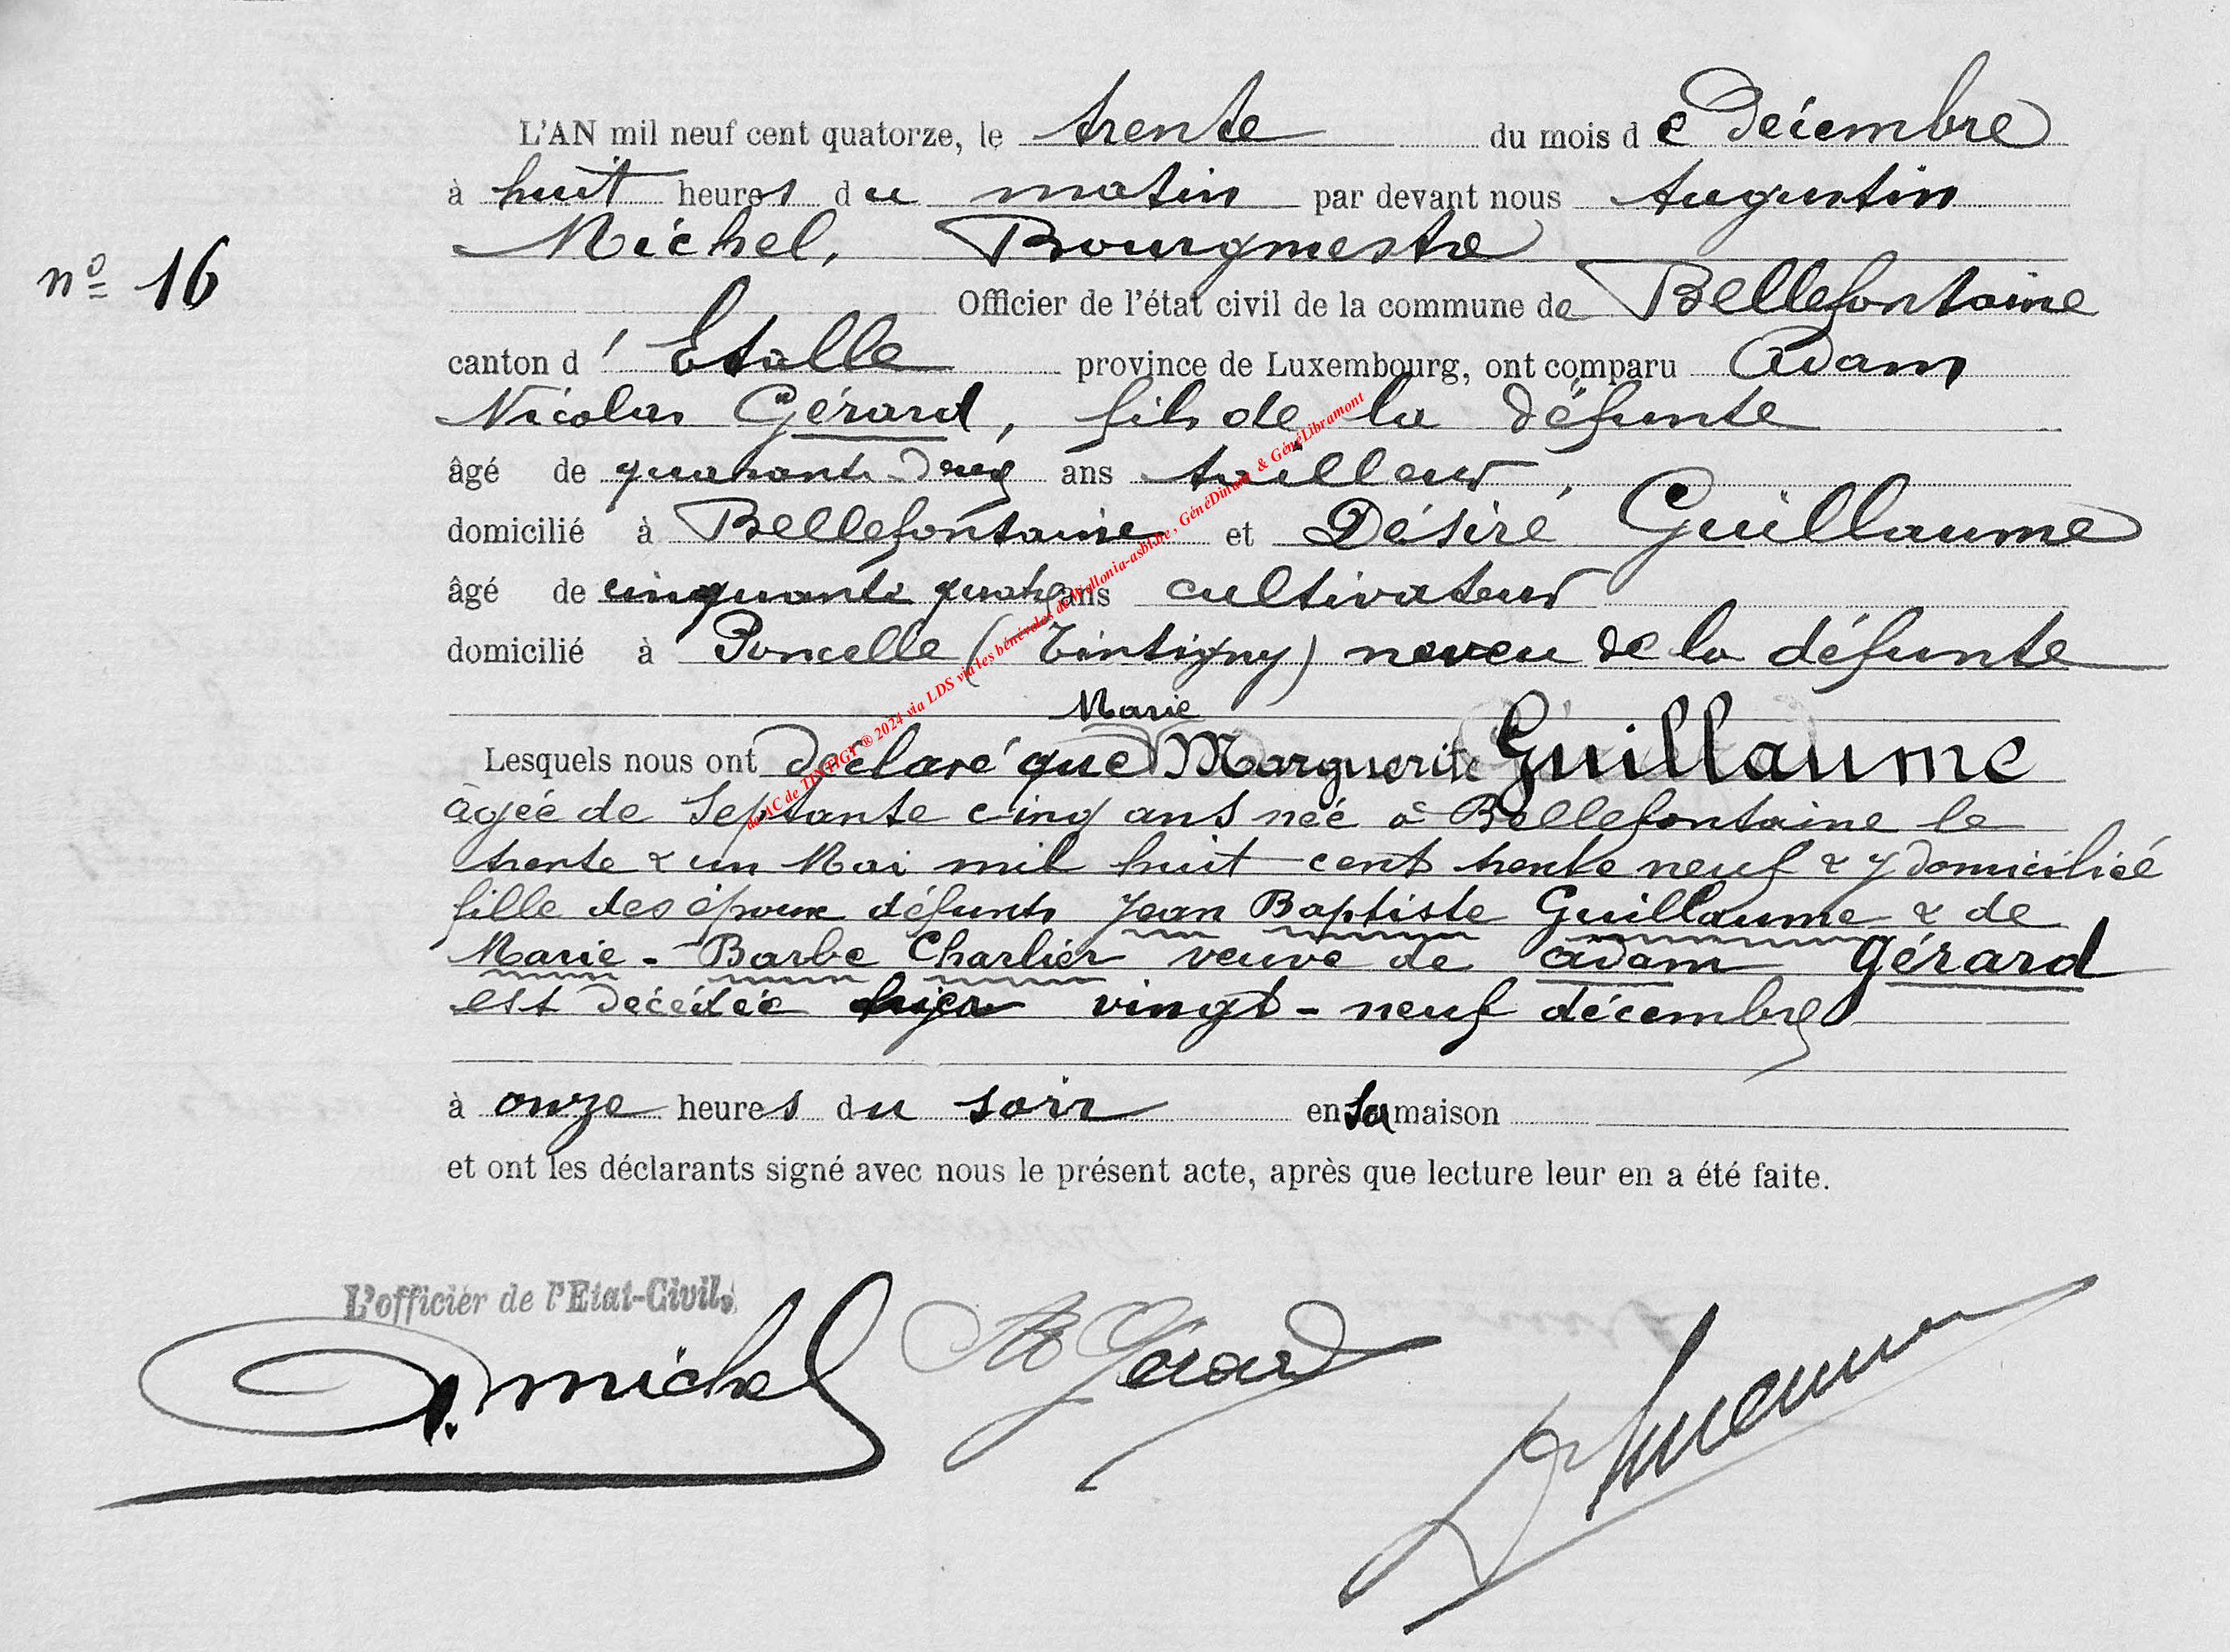 L'AN mil neuf cent quatorze, le trente du mois de Décembre
à huit heures du matin par devant nous Augustin
Michel, Bourgmestre
n° 16
Officier de l'état civil de la commune de Bellefontaine
canton d' Etalle province de Luxembourg, ont comparu Adam
Nicolas Gérard, fils de la défunte
âgé de quarante-deux ans tailleur,
domicilié à Bellefontaine et Désiré Guillaume
âgé de cinquante quatre ans cultivateur
domicilié à Poncelle (Tintigny) neveu de la défunte
Marie
Lesquels nous ont déclaré que Marguerite Guillaume
âgée de septante cinq ans née à Bellefontaine le
trente & un Mai mil huit cent trente neuf & y domiciliée
fille des époux défunts Jean Baptiste Guillaume & de
Marie-Barbe Charlier veuve de Adam Gérard
est décédée hier vingt-neuf décembre
à onze heures du soir en sa maison
et ont les déclarants signé avec nous le présent acte, après que lecture leur en a été faite.
L'officier de l'Etat-Civil,
A. Michel Gérard
de AC de TINTIGY ® 2024 via LDS via les bénévoles de Wallonia-asbl.be, GénéDinant & GénéLibramont